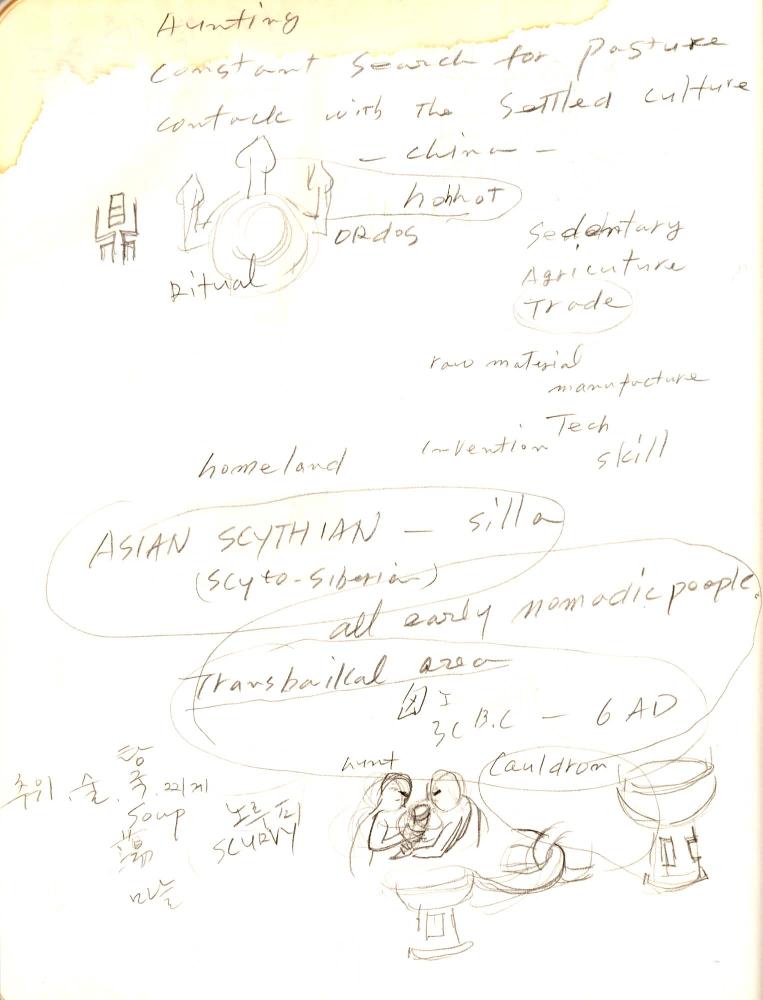 Hunting
constant search for pasture
contack with the settled culture
- china -
hohhot
ORdos
鼎
Ritual
Sedentary
Agricuture
Trade
raw material
manufacture
Tech
invention
skill
homeland
ASIAN SCYTHIAN - silla
(scyto-siberian)
all early nomadic people.
Transbaikal area
3C B.C - 6 AD
hunt
Cauldron
탕
추위.술.죽.찌게
soup
노루피
湯
SCURVY
마늘